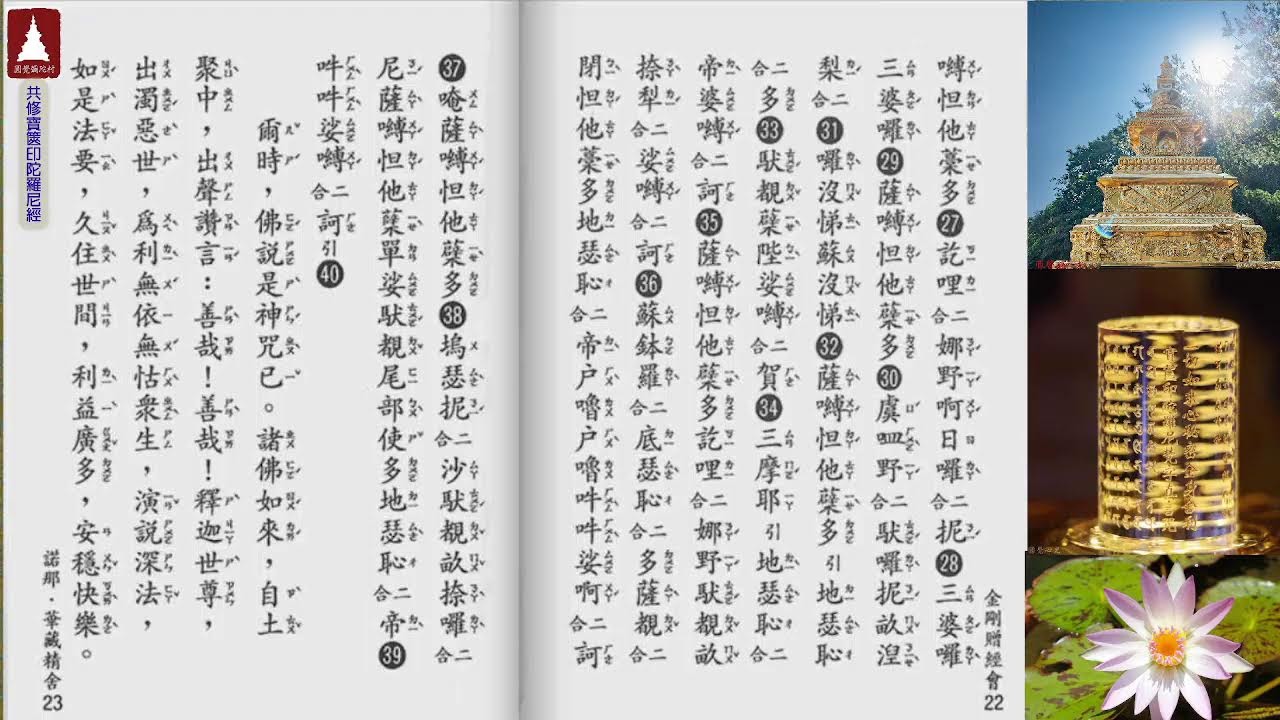 圓覺彌陀村
共修寶篋印陀羅尼經
嚩怛他蘗多㉗訖哩二合娜野啊日囉二合抳㉘三婆囉
三婆囉㉙薩嚩怛他蘗多㉚虞呬野二合馱囉抳畝涅
梨二合㉛囉沒悌蘇沒悌㉜薩嚩怛他蘗多引地瑟恥
二合多㉝馱覩蘗陛娑嚩二合賀㉞三摩耶引地瑟恥二合
帝婆嚩二合訶㉟薩嚩怛他蘗多訖哩二合娜野馱覩畝
捺犁二合娑嚩訶㊱蘇鉢羅二合底瑟恥二合多薩覩二合
閉怛他蘗多地瑟恥二合帝户嚕户嚕吽吽娑啊二合訶
金剛贈經會
22
㊲唵薩嚩怛他蘗多㊳塢瑟抳二合沙馱覩畝捺囉二合
尼薩嚩怛他蘗單娑馱覩尾部使多地瑟恥二合帝㊴
吽吽娑嚩二合訶引㊵
爾時，佛說是神咒已。諸佛如來，自土
聚中，出聲讚言：善哉！善哉！釋迦世尊，
出濁惡世，為利無依無怙衆生，演說深法，
如是法要，久住世間，利益廣多，安穩快樂。
諾那·華藏精舍
23